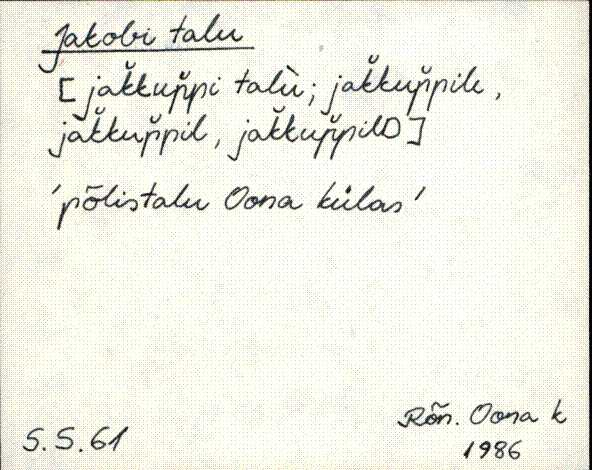 Jakobi talu
[jak̆kup̆pi talù; jak̆kup̆pile,
jak̆kup̆pil, jak̆kup̆pilD]
'põlistalu Oona külas'
S.S.61
Rõn. Oona k
1986